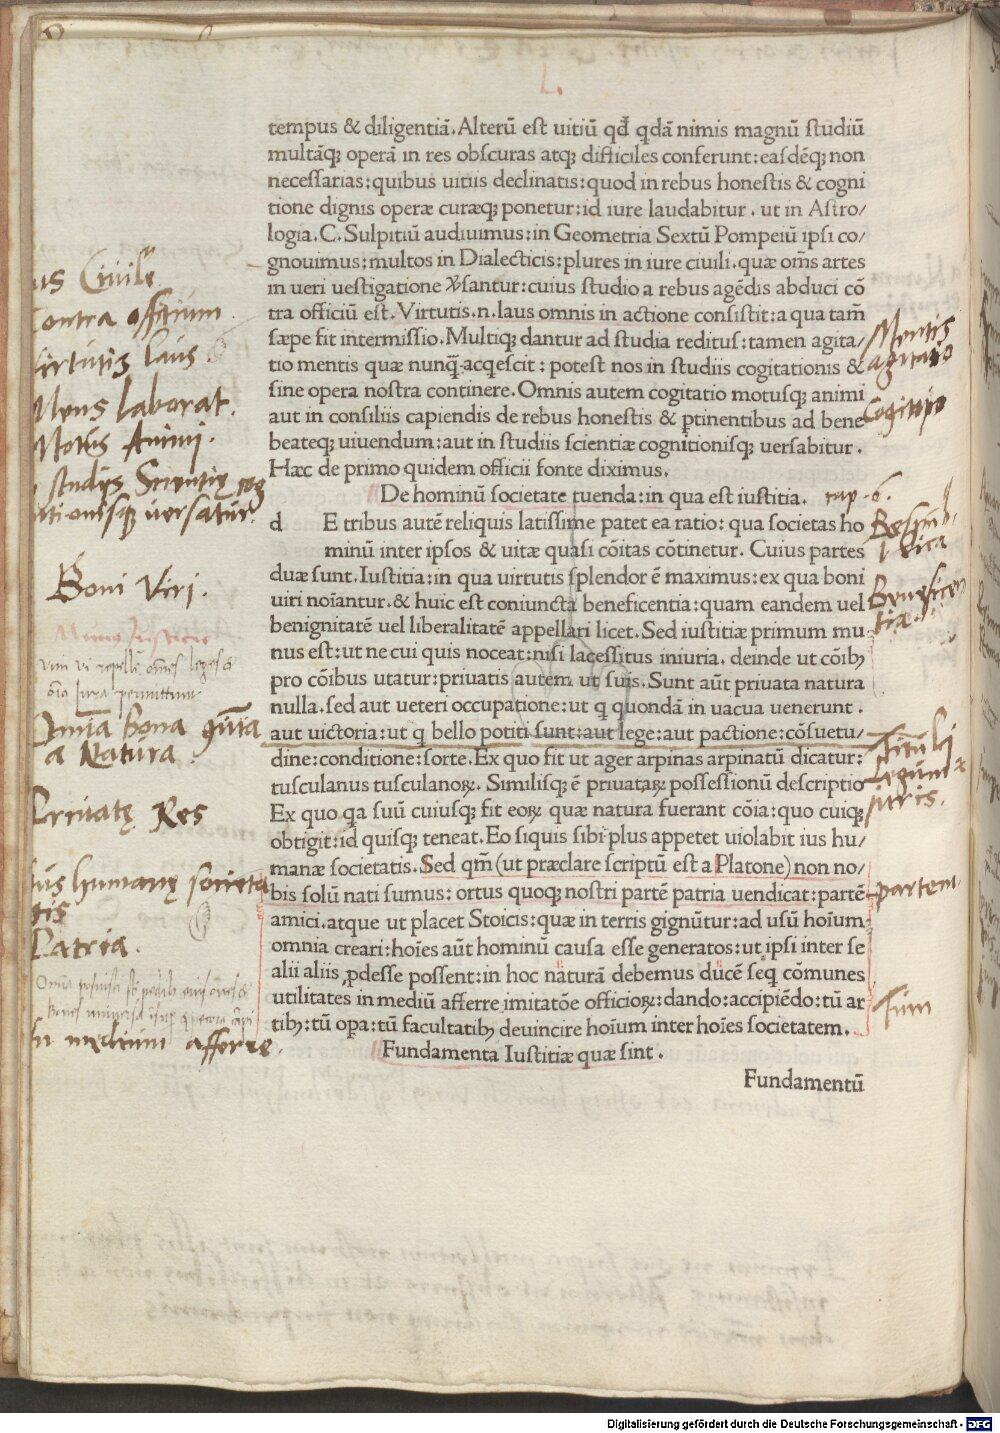 tempus & diligentiā. Alterū est uitiū qd̄ qdā nimis magnū studiū
multāq; operā in res obscuras atq; difficiles conferunt: easdēq; non
necessarias: quibus uitiis declinatis: quod in rebus honestis & cogni
tione dignis operæ curæq; ponetur: id iure laudabitur. ut in Astro/
logia. C. Sulpitiū audiuimus: in Geometria Sextū Pompeiū ipsi co/
gnouimus: multos in Dialecticis: plures in iure ciuili. quæ om̄s artes
in ueri uestigatione ꝟsantur: cuius studio a rebus agēdis abduci cō
tra officiū est. Virtutis. n. laus omnis in actione consistit: a qua tam̄
sæpe fit intermissio. Multiq; dantur ad studia reditus: tamen agita/
tio mentis quæ nunq̄ acqescit: potest nos in studiis cogitationis &
sine opera nostra continere. Omnis autem cogitatio motusq; animi
aut in consiliis capiendis de rebus honestis & ꝑtinentibus ad bene
beateq; uiuendum: aut in studiis scientiæ cognitionisq; uersabitur.
Hæc de primo quidem officii fonte diximus.
De hominū societate tuenda: in qua est iustitia. cap. 6.
d E tribus autē reliquis latissime patet ea ratio: qua societas ho
minū inter ipsos & uitæ quasi cōitas cōtinetur. Cuius partes
duæ sunt. Iustitia: in qua uirtutis splendor ē maximus: ex qua boni
uiri noīantur. & huic est coniuncta beneficentia: quam eandem uel
benignitatē uel liberalitatē appellari licet. Sed iustitiæ primum mu
nus est: ut ne cui quis noceat: nisi lacessitus iniuria. deinde ut cōibꝫ
pro cōibus utatur: priuatis autem ut suis. Sunt aūt priuata natura
nulla. sed aut ueteri occupatione: ut q quondā in uacua uenerunt.
aut uictoria: ut q bello potiti sunt: aut lege: aut pactione: cōsuetu/
dine: conditione: sorte. Ex quo fit ut ager arpinas arpinatū dicatur:
tusculanus tusculanoꝝ. Similisq; ē priuataꝝ possessionū descriptio
Ex quo qa suū cuiusq; fit eoꝝ quæ natura fuerant cōia: quo cuiq;
obtigit: id quisq; teneat. Eo siquis sibi plus appetet uiolabit ius hu/
manæ societatis. Sed qm̄ (ut præclare scriptū est a Platone) non no/
bis solū nati sumus: ortus quoq; nostri partē patria uendicat: partē
amici. atque ut placet Stoicis: quæ in terris gignūtur: ad usū hoīum
omnia creari: hoīes aūt hominū causa esse generatos: ut ipsi inter se
alii aliis ꝓdesse possent: in hoc naturā debemus ducē seq cōmunes
utilitates in mediū afferre imitatōe officioꝝ: dando: accipiēdo: tū ar
tibꝫ: tū opa: tū facultatibꝫ deuincire hoīum inter hoīes societatem.
Fundamenta Iustitiæ quæ sint.
Fundamentū
us Ciuile
Contra offitium.
Virtutis laus
Mens laborat.
Motus Animi.
studijs Scientię cog
nitionisq; uersatur.
Boni Viri.
Munus Iusticie
Vim vi repellere omnes leges &
omnia iura permittunt
Omnia bona quīta
a Natura.
Priuatę Res
Ius humanę societa
tis
Patria.
In medium afferre.
Mentis
agitatio
Cogitatio
Respub-
lica
Beneficen
tia
Tituli
Legum &
iuris.
partem.
Tum